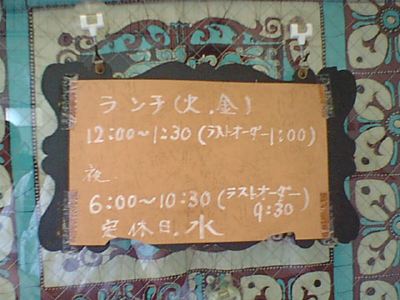 ランチ(火.金)
12:00～1:30(ラストオーダー1:00)
夜.
6:00～10:30(ラストオーダー9:30)
定休日.水